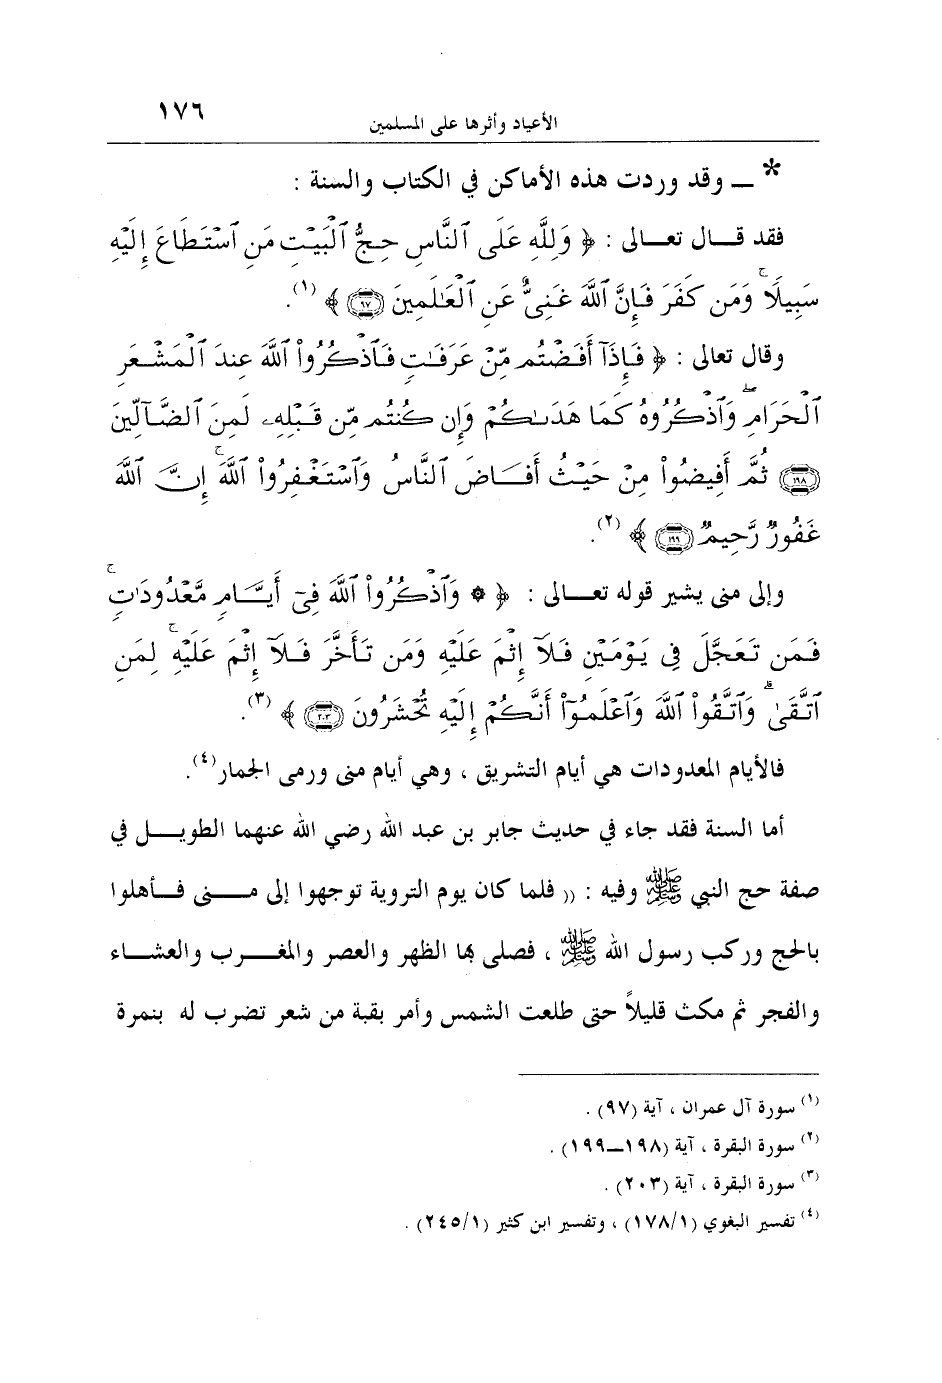 الأعياد وأثرها على المسلمين ١٧٦
* ـ وقد وردت هذه الأماكن في الكتاب والسنة :
فقد قال تعالى : ﴿ وَلِلَّهِ عَلَى ٱلنَّاسِ حِجُّ ٱلْبَيْتِ مَنِ ٱسْتَطَاعَ إِلَيْهِ
سَبِيلًا ۚ وَمَن كَفَرَ فَإِنَّ ٱللَّهَ غَنِىٌّ عَنِ ٱلْعَـٰلَمِينَ ٩٧ ﴾ (١).
وقال تعالى : ﴿ فَإِذَآ أَفَضْتُم مِّنْ عَرَفَـٰتٍ فَٱذْكُرُوا۟ ٱللَّهَ عِندَ ٱلْمَشْعَرِ
ٱلْحَرَامِ ۖ وَٱذْكُرُوهُ كَمَا هَدَىٰكُمْ وَإِن كُنتُم مِّن قَبْلِهِۦ لَمِنَ ٱلضَّآلِّينَ
١٩٨ ثُمَّ أَفِيضُوا۟ مِنْ حَيْثُ أَفَاضَ ٱلنَّاسُ وَٱسْتَغْفِرُوا۟ ٱللَّهَ ۚ إِنَّ ٱللَّهَ
غَفُورٌ رَّحِيمٌ ١٩٩ ﴾ (٢).
وإلى منى يشير قوله تعالى : ﴿ ۞ وَٱذْكُرُوا۟ ٱللَّهَ فِىٓ أَيَّامٍ مَّعْدُودَٰتٍ ۚ
فَمَن تَعَجَّلَ فِى يَوْمَيْنِ فَلَآ إِثْمَ عَلَيْهِ وَمَن تَأَخَّرَ فَلَآ إِثْمَ عَلَيْهِ ۚ لِمَنِ
ٱتَّقَىٰ ۗ وَٱتَّقُوا۟ ٱللَّهَ وَٱعْلَمُوٓا۟ أَنَّكُمْ إِلَيْهِ تُحْشَرُونَ ٢٠٣ ﴾ (٣).
فالأيام المعدودات هي أيام التشريق ، وهي أيام منى ورمى الجمار(٤).
أما السنة فقد جاء في حديث جابر بن عبد الله رضي الله عنهما الطويل في
صفة حج النبي ﷺ وفيه : (( فلما كان يوم التروية توجهوا إلى منى فأهلوا
بالحج وركب رسول الله ﷺ ، فصلى بها الظهر والعصر والمغرب والعشاء
والفجر ثم مكث قليلاً حتى طلعت الشمس وأمر بقبة من شعر تضرب له بنمرة
(١) سورة آل عمران ، آية (٩٧) .
(٢) سورة البقرة ، آية (١٩٨ــ١٩٩) .
(٣) سورة البقرة ، آية (٢٠٣) .
(٤) تفسير البغوي (١/ ١٧٨) ، وتفسير ابن كثير (١/ ٢٤٥) .